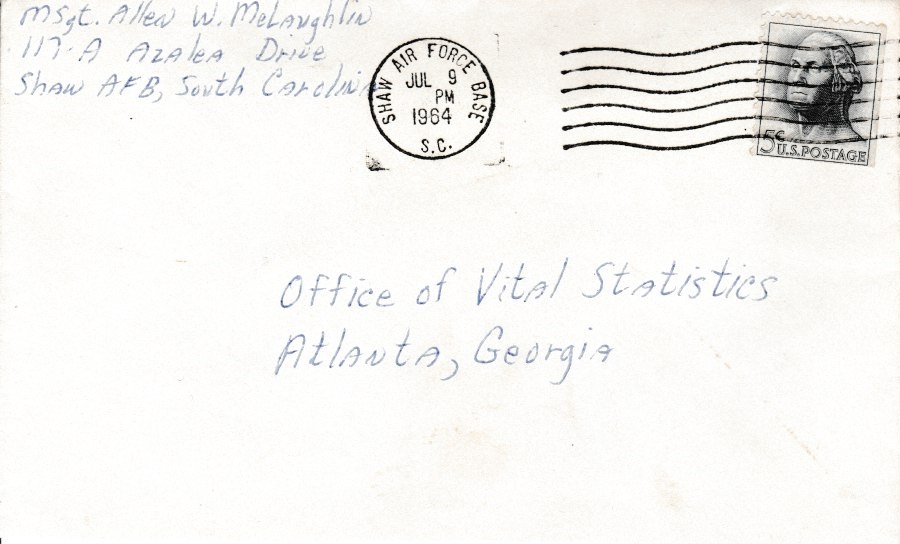 MSgt. Allen W. McLaughlin
117-A Azalea Drive
Shaw AFB, South Carolina
SHAW AIR FORCE BASE
JUL 9
PM
1964
S.C.
5¢ U.S. POSTAGE
Office of Vital Statistics
Atlanta, Georgia